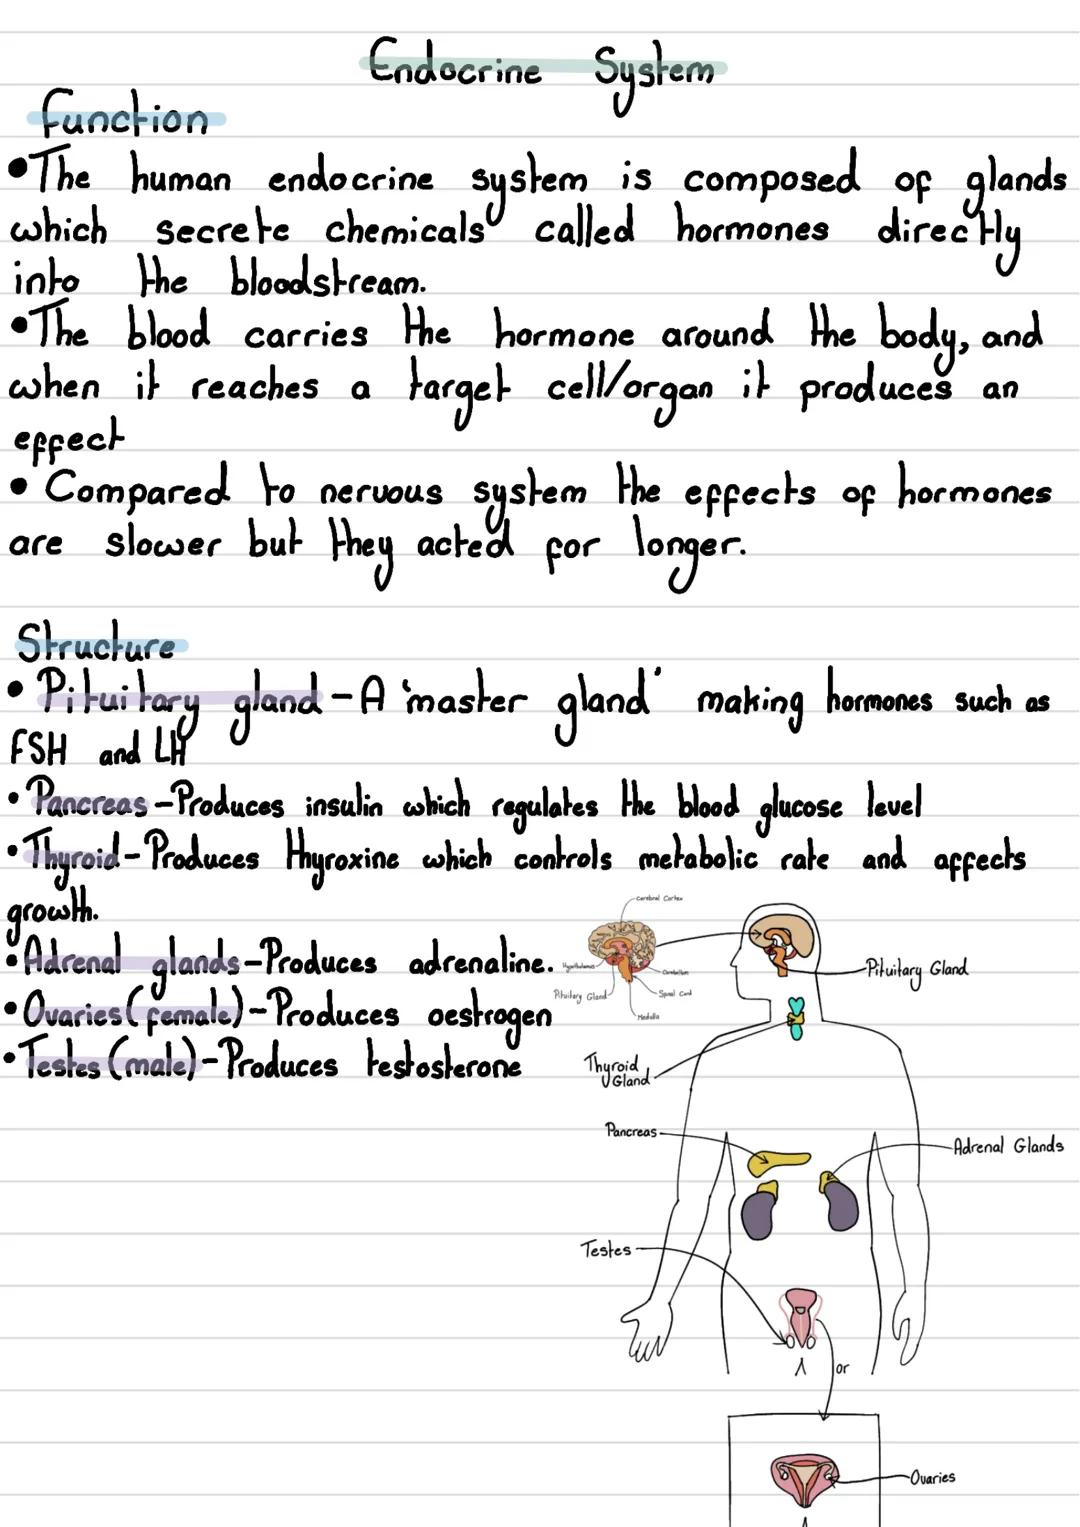 Endocrine System
Function
•The human endocrine system is composed of glands
which secrete chemicals called hormones directly
into the bloodstream.
•The blood carries the hormone around the body, and
when it reaches a target cell/organ it produces an
effect
• Compared to nervous system the effects of hormones
are slower but they acted for longer.
Structure
• Pituitary gland - A 'master gland' making hormones such as
FSH and LH
• Pancreas - Produces insulin which regulates the blood glucose level
• Thyroid - Produces Thyroxine which controls metabolic rate and affects
growth.
• Adrenal glands - Produces adrenaline.
• Ovaries (female) - Produces oestrogen
• Testes (male) - Produces testosterone
Cerebral Cortex
Hypothalamus
Cerebellum
Pituitary Gland
Spinal Cord
Medulla
Pituitary Gland
Thyroid
Gland
Pancreas
Adrenal Glands
Testes
or
Ovaries